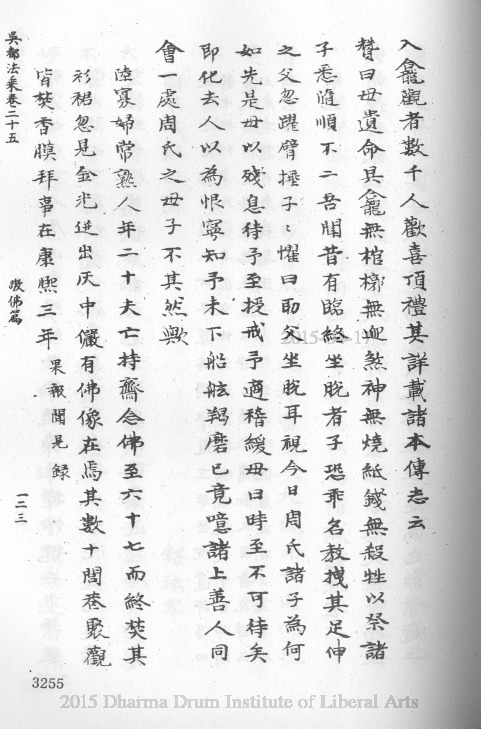 入龕觀者數千人歡喜頂禮其詳載諸本傳志云
贊曰母遺命具龕無棺槨無迎煞神無燒紙錢無殺牲以祭諸
子悉隨順不二吾聞昔有臨終坐脫者子恐乖名教拽其足伸
之父忽躍臂捶子〻懼曰助父坐脫耳視今日周氏諸子為何
如先是母以殘息待予至授戒予適稽緩母曰時至不可待矣
即化去人以為恨寧知予未下船舷羯磨已竟噫諸上善人同
會一處周氏之母子不其然歟
陸寡婦常熟人年二十夫亡持齋念佛至六十七而終焚其
衫裙忽見金光迸出灰中儼有佛像在焉其數十閭巷聚觀
皆焚香膜拜事在康熙三年 果報聞見録
吳都法乘卷二十五
一二三
3255
2015 Dharma Drum Institute of Liberal Arts